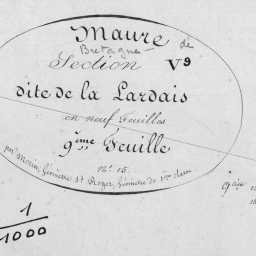 Maure de
Bretagne
Section V9
dite de la Lardais
en neuf Feuilles
9ème Feuille
Nº 15.
par Morin, Géomètre, et Roger, Géomètre de 1ère classe
1
1000